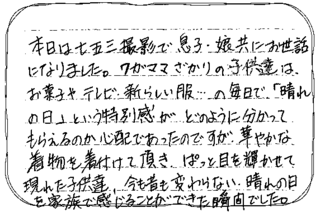 本日は七五三撮影で息子・娘共にお世話
になりました。ワガママざかりの子供達は、
お菓子やテレビ・新らしい服…の毎日で「晴れ
の日」という特別感が どのように分かって
もらえるのか心配であったのですが、華やかな
着物を着付けて頂き、ぱっと目を輝かせて
現れた子供達、今も昔も変わらない晴れの日
を家族で感じることができた瞬間でした。